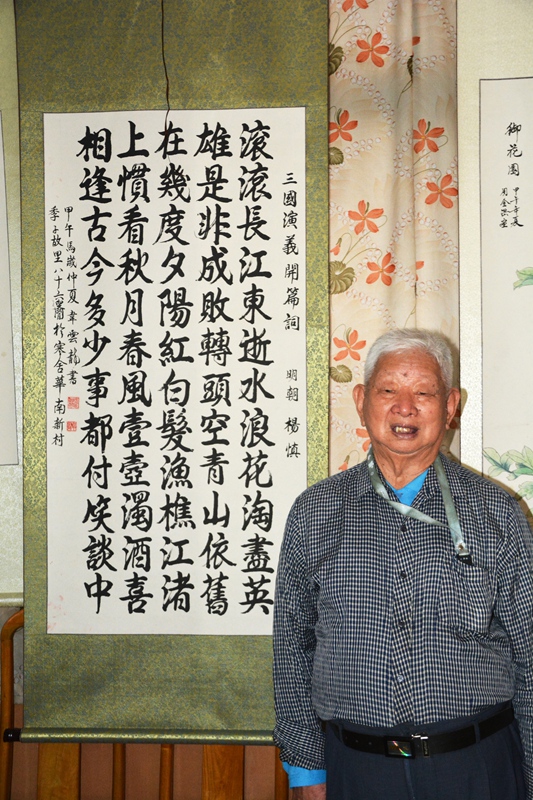 三國演義開篇詞 明朝 楊慎
滾滾長江東逝水浪花淘盡英
雄是非成敗轉頭空青山依舊
在幾度夕陽紅白髮漁樵江渚
上慣看秋月春風壹壺濁酒喜
相逢古今多少事都付笑談中
甲午馬歲仲夏韋雲龍書
季子故里八十六於寒舍華南新村
御花園
甲午年夏